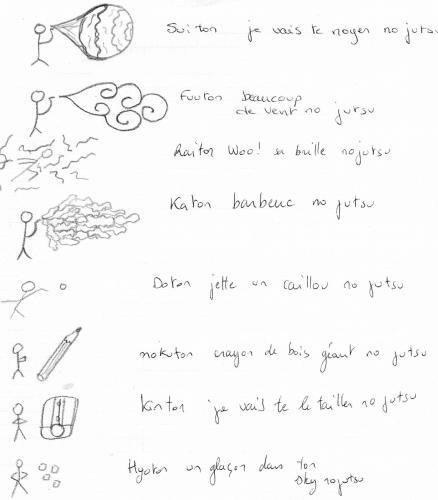 Suiton je vais te noyer no jutsu
Fuuton beaucoup
de vent no jutsu
Raiton Woo! sa brille no jutsu
Katon barbeuc no jutsu
Doton jette un caillou no jutsu
mokuton crayon de bois géant no jutsu
Kinton je vais te le tailler no jutsu
Hyoton un glaçon dans ton
Sky no jutsu